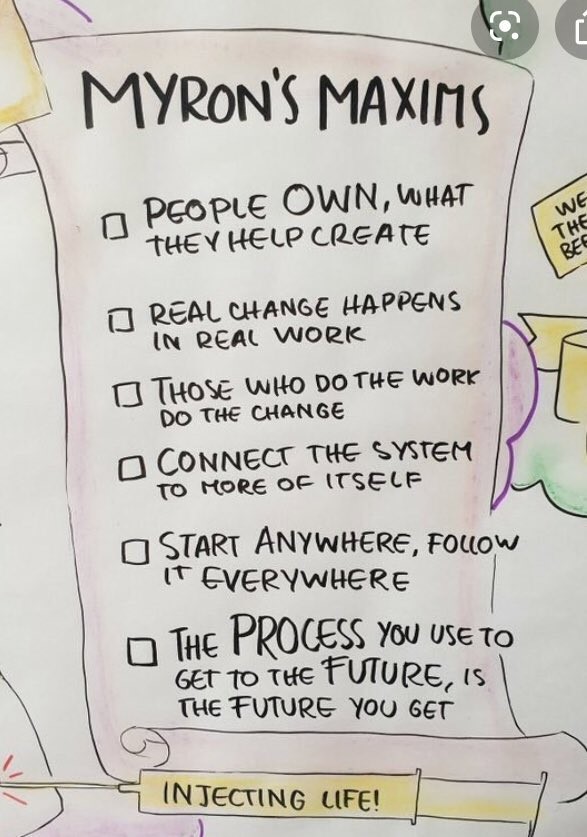 MYRON'S MAXIMS
PEOPLE OWN, WHAT
THEY HELP CREATE
REAL CHANGE HAPPENS
IN REAL WORK
THOSE WHO DO THE WORK
DO THE CHANGE
CONNECT THE SYSTEM
TO MORE OF ITSELF
START ANYWHERE, FOLLOW
IT EVERYWHERE
THE PROCESS YOU USE TO
GET TO THE FUTURE, IS
THE FUTURE YOU GET
WE
THE
INJECTING LIFE!